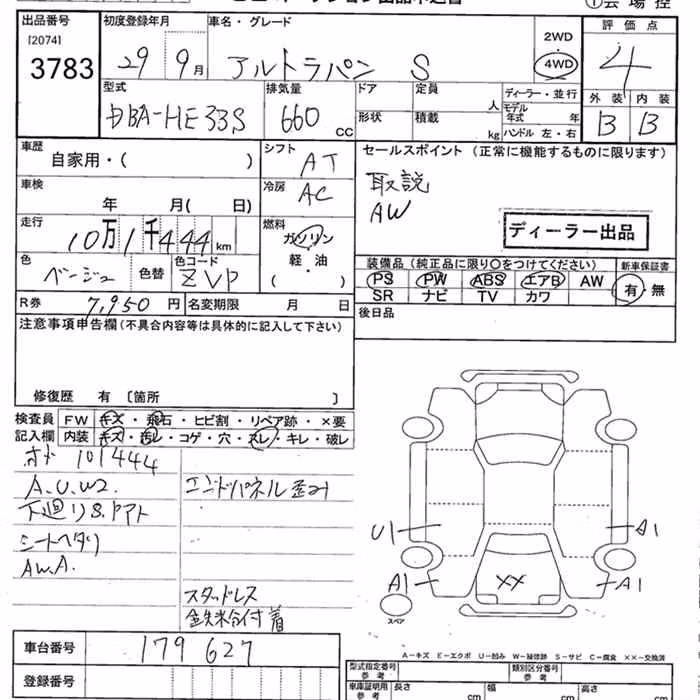 ①会場控
出品番号 初度登録年月 車名・グレード 評価点
[2074] 2WD
3783 29 9月 アルトラパン S 4WD 4
型式 排気量 ドア 定員 ディーラー・並行 外装 内装
人 モデル年式 年
DBA-HE33S 660 CC 形状 積載 kg ハンドル 左・右 B B
車歴 シフト セールスポイント (正常に機能するものに限ります)
自家用・( ) AT
取説
車検 冷房 AC
年 月( 日) AW
走行 燃料 ディーラー出品
10万1千444km ガソリン
軽・油
色 色替 色コード ( ) 装備品(純正品に限り○をつけてください) 新車保証書
ベージュ ZVP PS PW ABS エアB AW 有・無
R券 7,950円 名変期限 月 日 SR ナビ TV カワ
注意事項申告欄(不具合内容等は具体的に記入して下さい) 後日品
修復歴 有 〔箇所 〕
検査員 FW キズ・飛石・ヒビ割・リペア跡・×要
記入欄 内装 キズ・汚レ・コゲ・穴・スレ・キレ・破レ
オド 101444
A.U.W2. エンドパネル歪み
下廻りS.
シートヘタリ
U1 A1
AW.A.
A1 XX A1
スタッドレス
鉄 付着
スペア
車台番号 179627
A－キズ E－エクボ U－凹み W－補修跡 S－サビ C－腐食 ××－交換済
登録番号 型式指定番号 参考 類別区分番号 参考
車庫証明用 参考 長さ cm 幅 cm 高さ cm